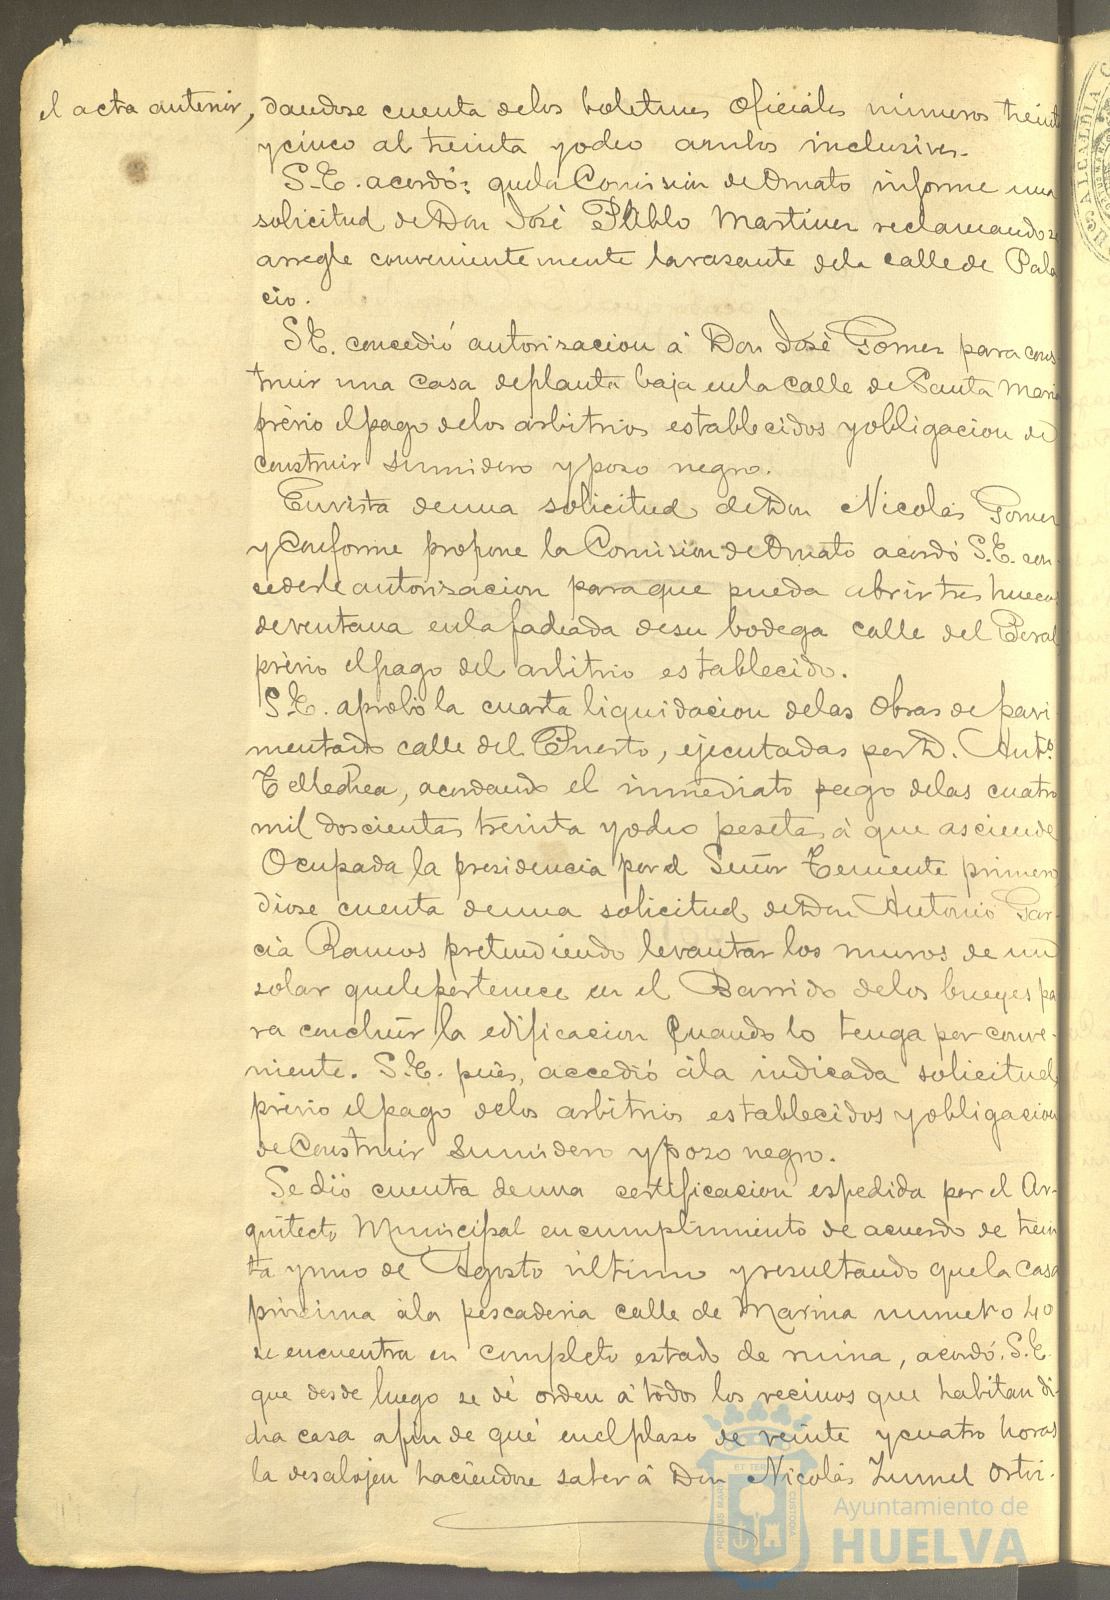 el acta anterior, dandose cuenta delos boletines Oficiales números treint
y cinco al treinta yocho ambos inclusives.
S.E. acordó: quela Comision deOrnato informe una
solicitud de Don José Pablo Martinez reclamando se
arregle convenientemente larasante dela calle de Pala
cio.
S.E. concedió autorizacion á Don José Gomez para cons
truir una casa deplanta baja enla calle de Santa Maria
prévio elpago delos arbitrios establecidos yobligacion de
construir sumidero ypozo negro.
Envista deuna solicitud de Don Nicolás Gomez
y Conforme propone la Comision deOrnato acordó S.E. con-
cederle autorizacion paraque pueda abrir tres huecos
deventana enlafachada desu bodega calle del Peral
prévio elpago del arbitrio establecido.
S.E. aprobó la cuarta liquidacion delas Obras de pavi-
mentado calle del Puerto, ejecutadas por D. Antº
Tellechea, acordando el inmediato pago delas cuatro
mil doscientas treinta yocho pesetas á que asciende
Ocupada la presidencia por el Señor Teniente primero
diose cuenta deuna solicitud de Don Antonio Gar-
cia Ramos pretendiendo levantar los muros de un
solar quelepertenece en el Barrido delos bueyes pa
ra concluir la edificacion Quando lo tenga por conve-
niente. S.E. pués, accedió ála indicada solicitud
prévio elpago delos arbitrios establecidos yobligacion
deConstruir Sumidero ypozo negro.
Se dió cuenta deuna certificacion espedida por el Ar-
quitecto Municipal en cumplimiento de acuerdo de trein
ta yuno de Agosto último yresultando quela Casa
próxima ála pescaderia calle de Marina numero 40
se encuentra en completo estado de ruina, acordó S.E.
que desde luego se dé orden á todos los vecinos que habitan di-
cha casa afin de qué enelplazo de veinte ycuatro horas
la desalojen haciendose saber á Don Nicolás Zunel Ortiz.
PORTUS MARIS
ET TERRE
CUSTODIA
Ayuntamiento de
HUELVA
ALCALDIA